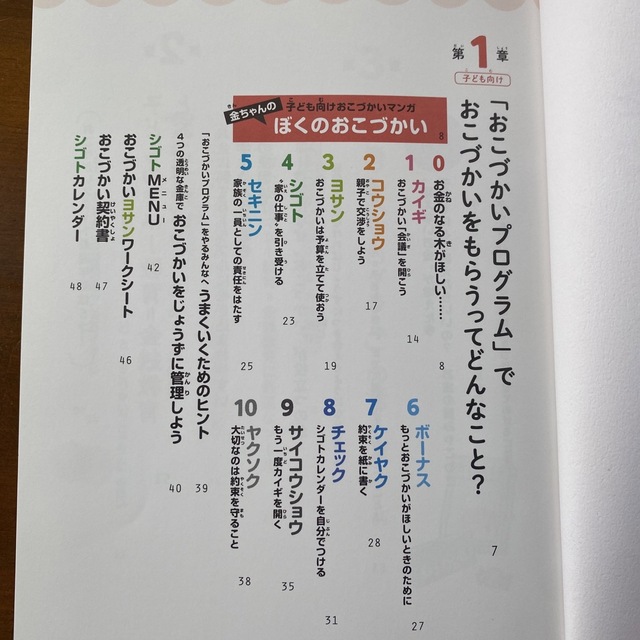 第1章
子ども向け
「おこづかいプログラム」で
おこづかいをもらうってどんなこと？
7
金ちゃんの
子ども向けおこづかいマンガ
ぼくのおこづかい
8
0
お金のなる木がほしい……
8
1
カイギ
おこづかい「会議」を開こう
14
2
コウショウ
親子で交渉をしよう
17
3
ヨサン
おこづかいは予算を立てて使おう
19
4
シゴト
“家の仕事”を引き受ける
23
5
セキニン
家族の一員としての責任をはたす
25
6
ボーナス
もっとおこづかいがほしいときのために
27
7
ケイヤク
約束を紙に書く
28
8
チェック
シゴトカレンダーを自分でつける
31
9
サイコウショウ
もう一度カイギを開く
35
10
ヤクソク
大切なのは約束を守ること
38
「おこづかいプログラム」をやるみんなへ うまくいくためのヒント
39
4つの透明な金庫で おこづかいをじょうずに管理しよう
40
シゴトMENU
42
おこづかいヨサンワークシート
46
おこづかい契約書
47
シゴトカレンダー
48